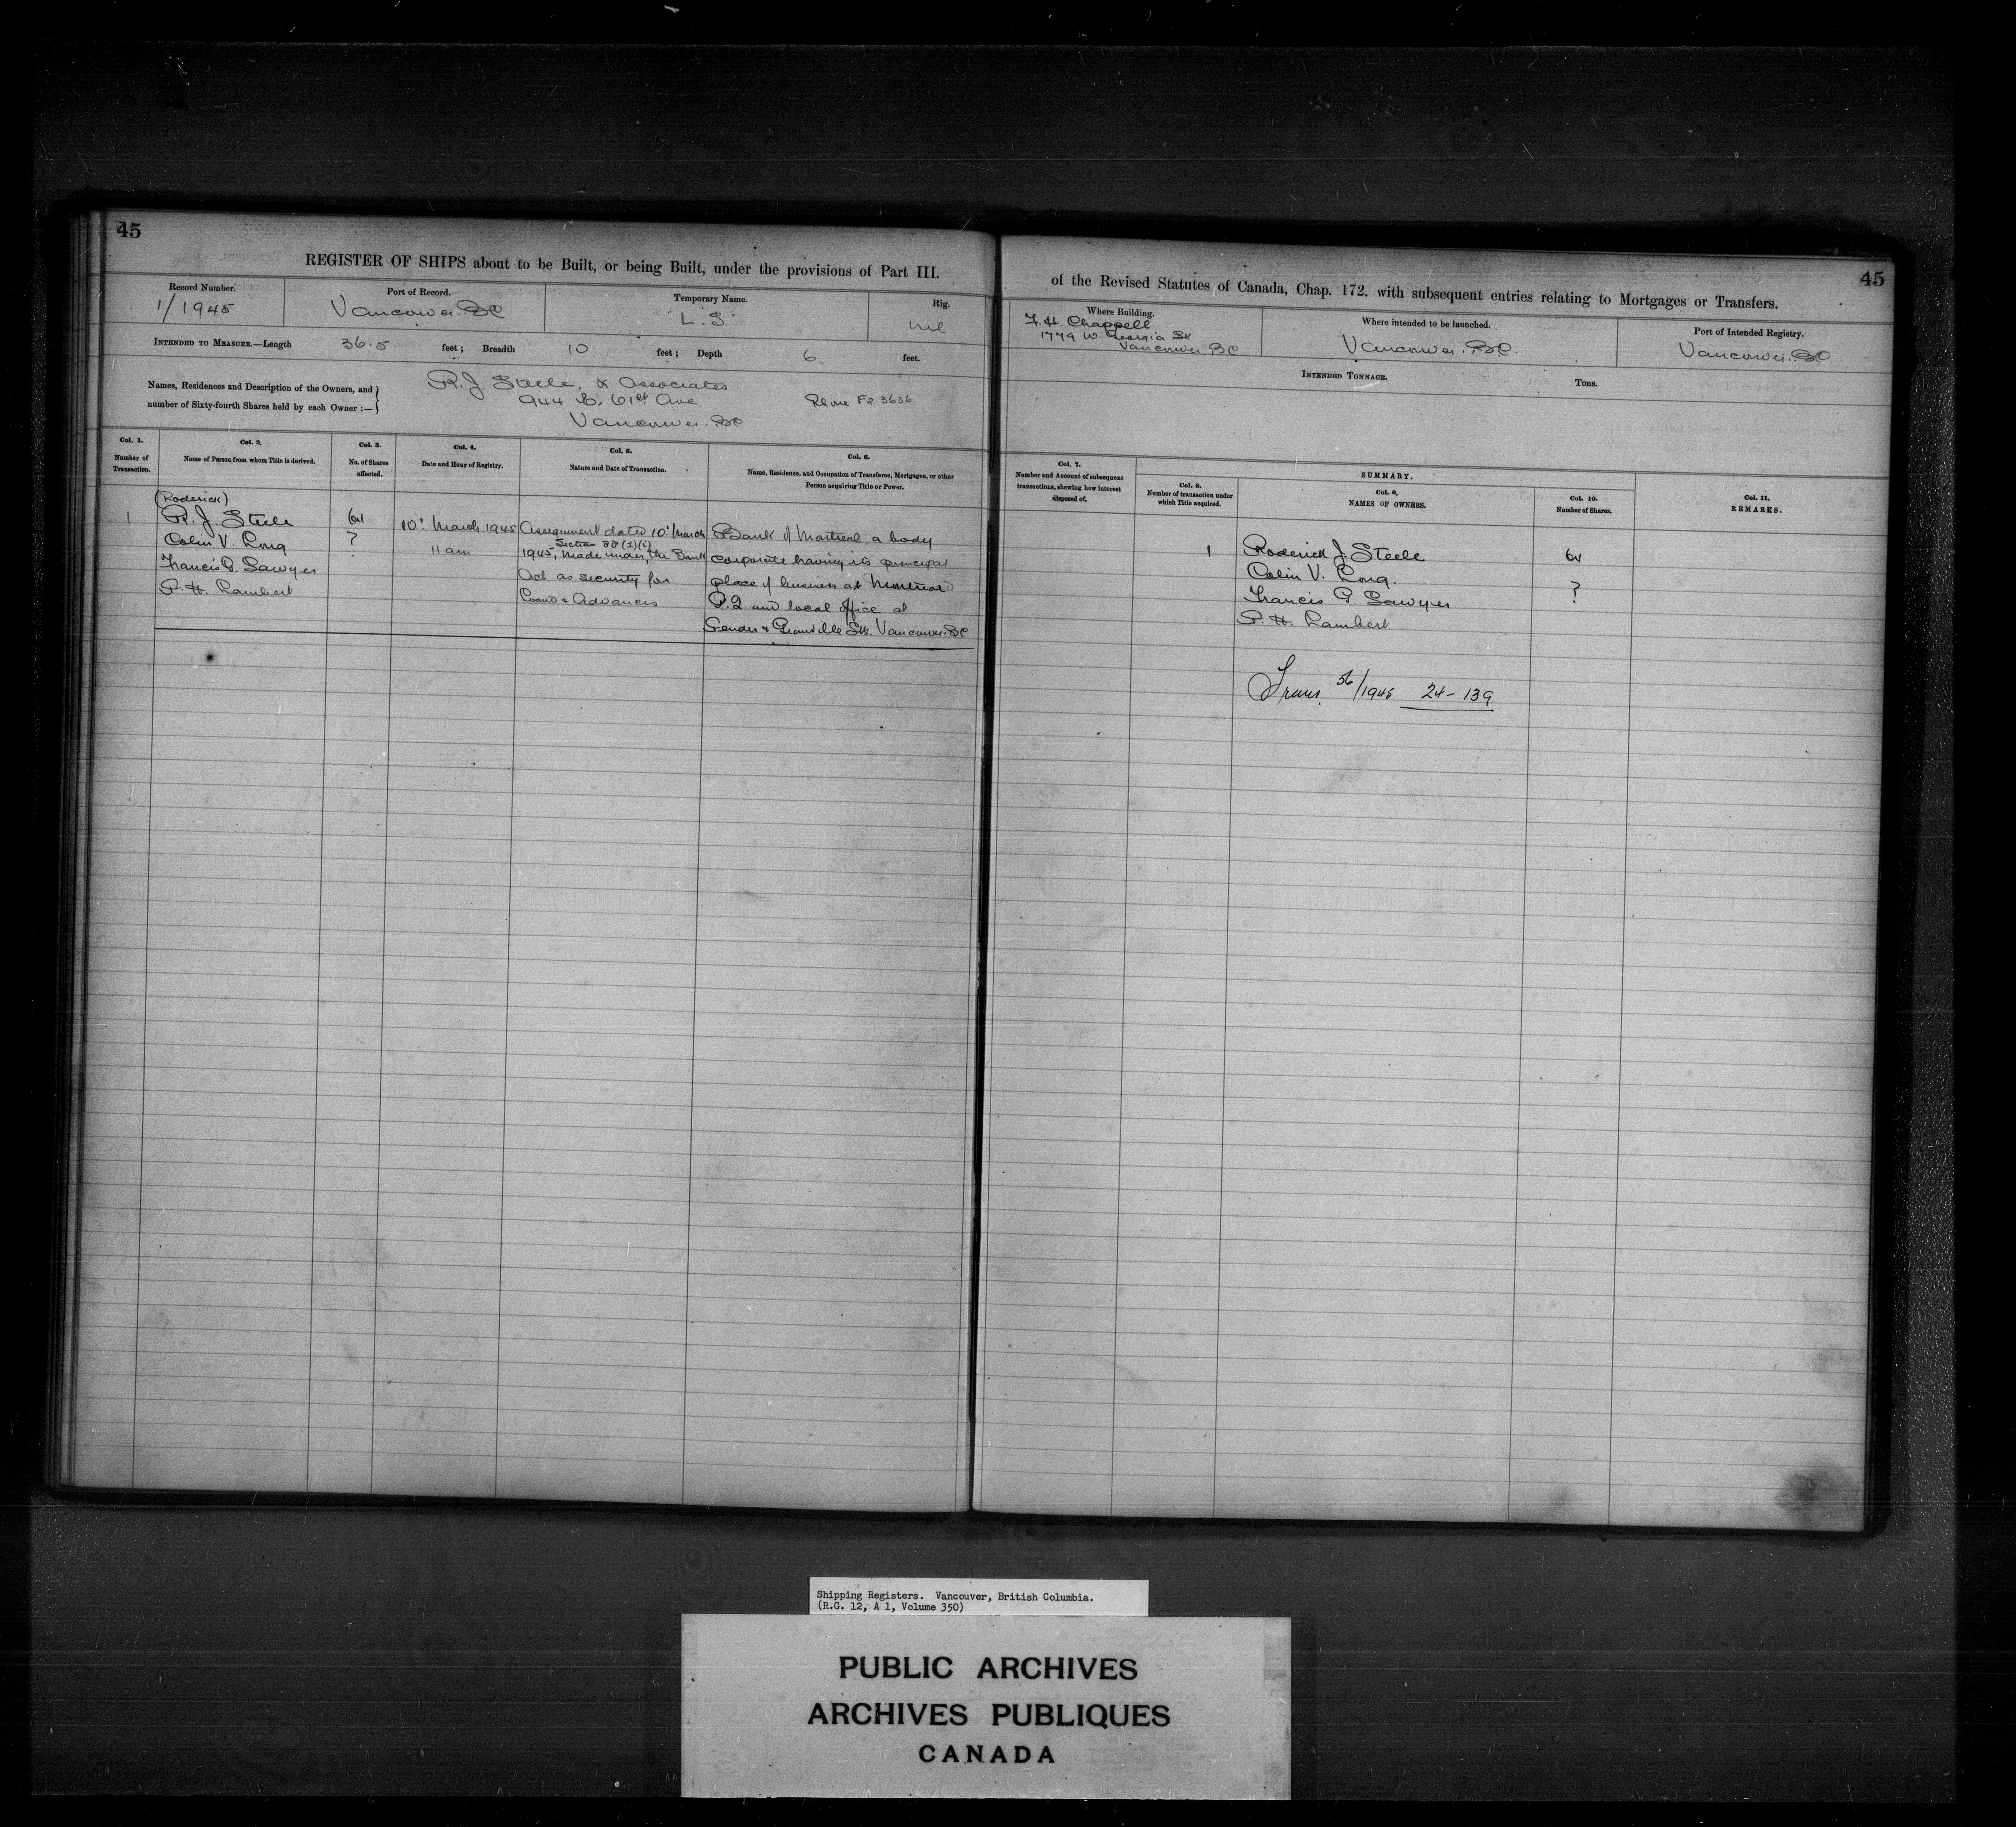 45
REGISTER OF SHIPS about to be Built, or being Built, under the provisions of Part III.
Record Number.
1/1945
Port of Record.
Vancouver. BC
Temporary Name.
"L.S"
Rig.
nil
INTENDED TO MEASURE.—Length 36.5 feet; Breadth 10 feet; Depth 6. feet.
Names, Residences and Description of the Owners, and
number of Sixty-fourth Shares held by each Owner :—
R. J. Steele, & Associates
944 E. 61st Ave
Phone Fr. 3636
Vancouver. BC
Col. 1.
Number of
Transaction.
Col. 2.
Name of Person from whom Title is derived.
Col. 3.
No. of Shares
affected.
Col. 4.
Date and Hour of Registry.
Col. 5.
Nature and Date of Transaction.
Col. 6.
Name, Residence, and Occupation of Transferee, Mortgagee, or other
Person acquiring Title or Power.
1
(Roderick)
R. J. Steele
Colin V. Long
Francis G. Sawyer
P. H. Lambert
64
?
10th March 1945
11 am
Assignment dated 10th March
Section 88 (1)(i)
1945, made under, the Bank
Act as security for
Loans & Advances
Bank of Montreal, a body
corporate having its principal
place of business at Montreal
P.Q and local office at
Pender & Granville Sts. Vancouver. BC
45
of the Revised Statutes of Canada, Chap. 172. with subsequent entries relating to Mortgages or Transfers.
Where Building.
F. H. Chappell
1779 W. Georgia St
Vancouver BC
Where intended to be launched.
Vancouver. BC.
Port of Intended Registry.
Vancouver. BC
INTENDED TONNAGE.
Tons.
Col. 7.
Number and Account of subsequent
transactions, showing how interest
disposed of.
SUMMARY.
Col. 8.
Number of transaction under
which Title acquired.
Col. 9.
NAMES OF OWNERS.
Col. 10.
Number of Shares.
Col. 11.
REMARKS.
1
Roderick J. Steele
Colin V. Long.
Francis G. Sawyer
P. H. Lambert
64
?
Trans. 56/1945 24-139
Shipping Registers. Vancouver, British Columbia.
(R.G. 12, A 1, Volume 350)
PUBLIC ARCHIVES
ARCHIVES PUBLIQUES
CANADA